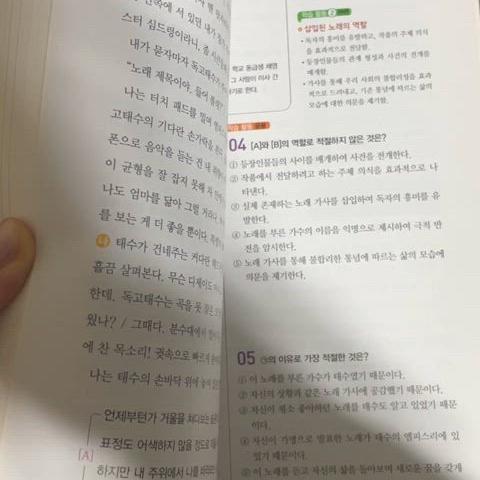 스터 심드렁이라니, 좀
내가 묻자마자 독고태수
"노래 제목이야. 들어
나는 터치 패드를 밀며
고태수의 기다란 손가락을
폰으로 음악을 듣는 건 내
이 균형을 잘 잡지 못해 자
나도 엄마를 닮아 그럴 거라
를 보는 게 더 좋을 뿐이다.
나 태수가 건네주는 커다란
흘끔 살펴본다. 무슨 디제이도
한데. 독고태수는 곡을 못
웠나? / 그때다. 분수대에서
에 찬 목소리! 귓속으로 빠르게
나는 태수의 손바닥 위에
[A]
언제부턴가 거울을 쳐다보는
표정도 어색하지 않을 정도로
하지만 내 주위에서 나를
학교 동급생 재영
그 사람이 이사 간
가로 한다.
학습 활동 2
삽입된 노래의 역할
• 독자의 흥미를 유발하고, 작품의 주제 의식
을 효과적으로 전달함.
• 등장인물들의 관계 형성과 사건의 전개를
매개함.
• 가사를 통해 우리 사회의 불합리성을 효과
적으로 드러내고, 기존 통념에 따르는 삶의
모습에 대한 의문을 제기함.
학습 활동 응용
04 [A]와 [B]의 역할로 적절하지 않은 것은?
① 등장인물들의 사이를 매개하여 사건을 전개한다.
② 작품에서 전달하려고 하는 주제 의식을 효과적으로 나
타낸다.
③ 실제 존재하는 노래 가사를 삽입하여 독자의 흥미를 유
발한다.
④ 노래를 부른 가수의 이름을 익명으로 제시하여 극적 반
전을 암시한다.
⑤ 노래 가사를 통해 불합리한 통념에 따르는 삶의 모습에
의문을 제기한다.
05 ㉠의 이유로 가장 적절한 것은?
① 이 노래를 부른 가수가 태수였기 때문이다.
② 자신의 상황과 같은 노래 가사에 공감했기 때문이다.
③ 자신이 평소 좋아하던 노래를 태수도 알고 있었기 때문
이다.
④ 자신이 가명으로 발표한 노래가 태수의 엠피스리에 있
었기 때문이다.
⑤ 이 노래를 듣고 자신의 삶을 돌아보며 새로운 꿈을 갖게